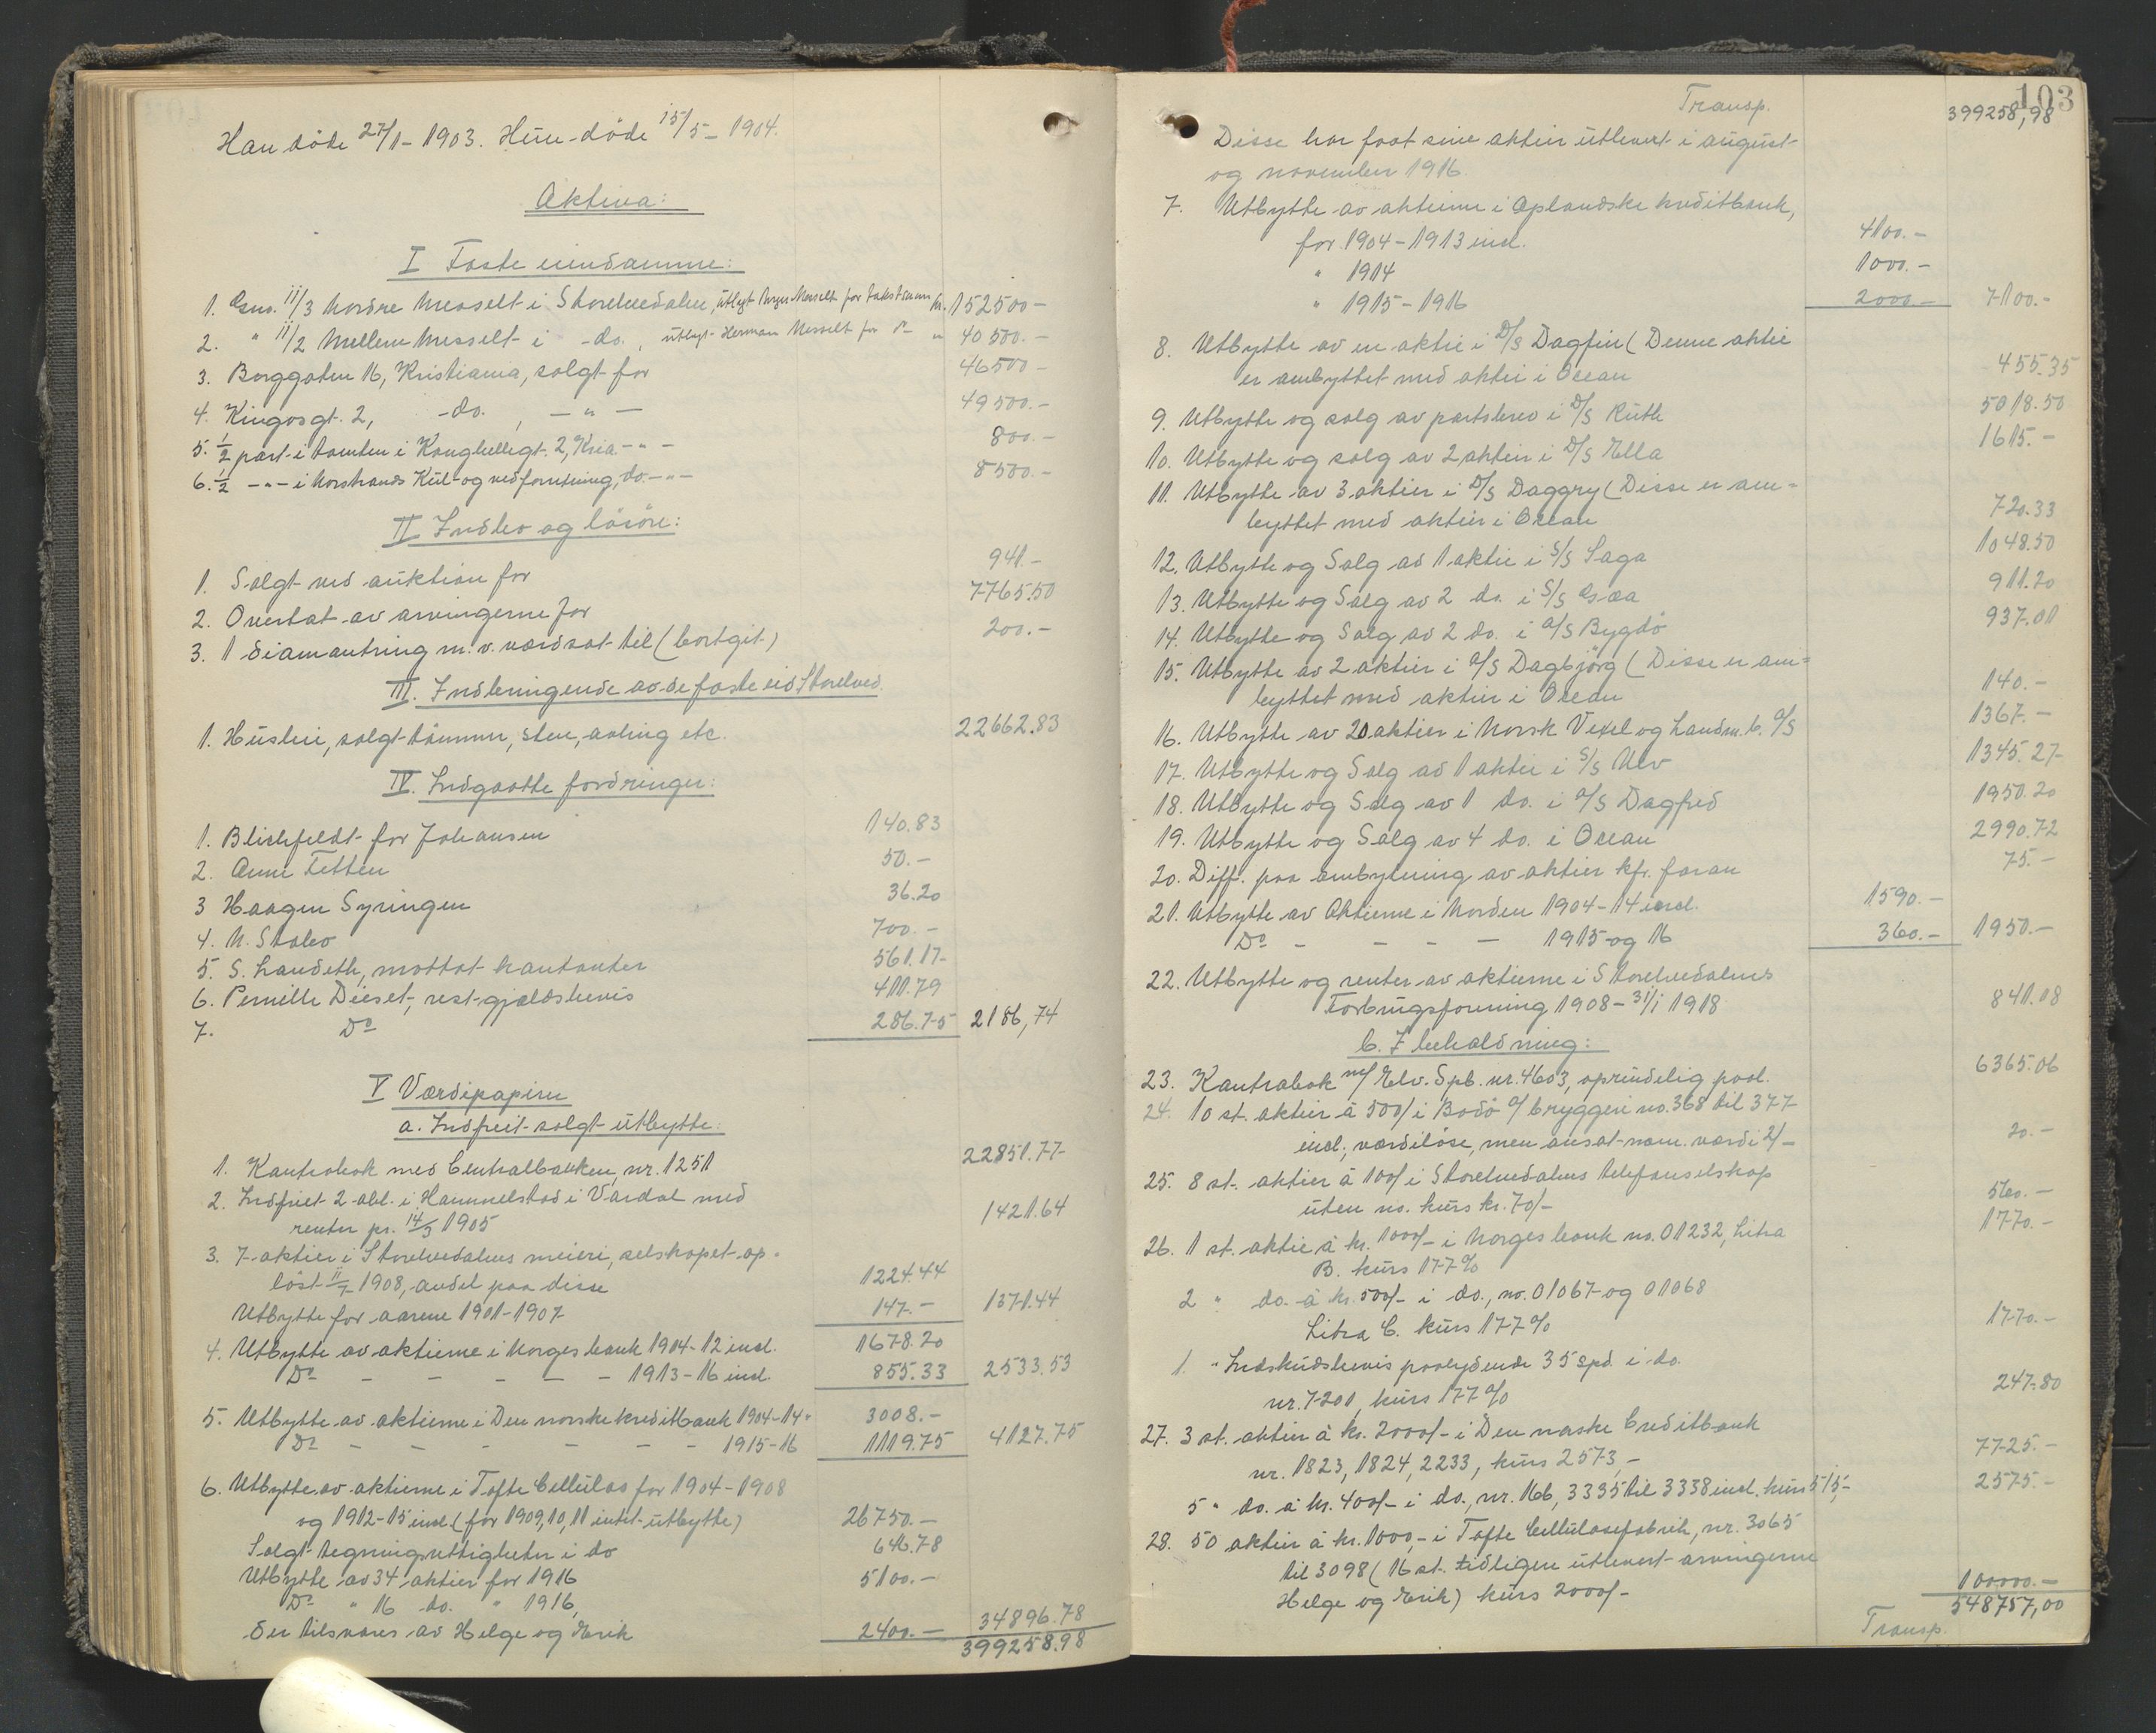 Han döde 27/1 - 1903. Hun döde 15/5 - 1904.
Aktiva:
I Faste eiendomme:
1. Gno. 11/3 Nordre Messelt i Storelvedalen, utlagt Messelt for takstsum kr. 152500 -
2. " 11/2 Mellem Messelt i - do. , utlagt Herman Messelt for do " 40500. -
3. Borggaten 16, Kristiania, solgt for 46500 -
4. Kingosgt. 2, - do. , - " - 49500. -
5. 1/2 part i tomten i Konghellegt. 2, Kria. - " - 800. -
6. 1/2 - " - i Norstrands Kul- og vedforretning, do. - " - 8500. -
II Indbo og lösöre:
1. Solgt ved auktion for 941. -
2. Overtat av arvingerne for 7765.50
3. 1 diamantring m. v. værdsat til (bortgit) 200. -
III. Indbringende av de faste eid Storelved.
1. Husleie, solgt tömmer, sten, avling etc. 22662.83
IV. Indgaatte fordringer:
1. Blichfeldt for Johansen 140.83
2. Anne Tetten 50. -
3 Haagen Syringen 36.20
4. N. Stabo 700. -
5. S. Landeth, mottat kontanter 561.17
6. Pernille Dieset, rest gjældsbevis 411.79
7. Do 286.75 2186,74
V Værdipapirer
a. Indfriet solgt utbytte:
1. Kontrabok med Centralbanken, nr. 1251 22851.77
2. Indfriet 2 obl. i Hammelstad i Vardal med
renter pr. 14/3 1905 1421.64
3. 7 aktier i Storelvedalens meieri, selskapet op-
löst 11/7 1908, andel paa disse 1224.44
Utbytte for aarene 1901-1907 147. - 1371.44
4. Utbytte av aktierne i Norges bank 1904-12 incl. 1678.20
Do - - - - - 1913-16 incl. 855.33 2533.53
5. Utbytte av aktierne i Den norske kreditbank 1904-14 " 3008. -
Do - - - - - - 1915-16 1119.75 4127.75
6. Utbytte av aktierne i Tofte Cellulos for 1904-1908
og 1912-15 incl. (for 1909, 10, 11 intet utbytte) 26750. -
Solgt tegningsrettigheter i do 646.78
Utbytte av 34 aktier for 1916 5100. -
Do " 16 do. " 1916,
der tilsvares av Helge og Erik 2400. - 34896.78
399258.98
103
Transp. 399258,98
Disse har faat sine aktier utlevert i august
og november 1916.
7. Utbytte av aktierne i Oplandske kreditbank,
for 1904-1913 incl. 4100. -
" 1914 1000. -
" 1915-1916 2000. - 7100. -
8. Utbytte av en aktie i D/S Dagfin (Denne aktie
er ombyttet med aktie i Ocean 455.35
9. Utbytte og salg av partsbrev i D/S Ruth 5018.50
10. Utbytte og salg av 2 aktier i D/S Ella 1615. -
11. Utbytte av 3 aktier i D/S Daggry (Disse er om-
byttet med aktier i Ocean 720.33
12. Utbytte og Salg av 1 aktie i S/S Saga 1048.50
13. Utbytte og Salg av 2 do. i S/S Gæa 911.20
14. Utbytte og Salg av 2 do. i A/S Bygdö 937.01
15. Utbytte av 2 aktier i A/S Dagbjörg (Disse er om-
byttet med aktier i Ocean 140. -
16. Utbytte av 20 aktier i Norsk Vexel og Landm. b. A/S 1367. -
17. Utbytte og Salg av 1 aktie i S/S Ulv 1345.27
18. Utbytte og Salg av 1 do. i A/S Dagfred 1950.20
19. Utbytte og Salg av 4 do. i Ocean 2990.72
20. Diff. paa ombytning av aktier kfr. foran 75. -
21. Utbytte av Aktierne i Norden 1904-14 incl. 1590. -
Do - - - - 1915 og 16 360. - 1950. -
22. Utbytte og renter av aktierne i Storelvedalens
Forbrugsforening 1908 - 31/1 1918 841.18
b. I behaldning:
23. Kontrabok m/ Elv. Spb. nr. 4603, oprindelig paal. 6365.06
24. 10 st. aktier à 500/ i Bodö A/ bryggeri no. 368 til 377
incl., værdilöse, men ansat nom. værdi 2/- 20. -
25. 8 st. aktier à 100/ i Storelvedalens telefonselskap
uten no. kurs kr. 70/- 560. -
26. 1 st. aktie à kr. 1000/- i Norges bank no. 01232, Litra
B. kurs 177 % 1770. -
2 " do. à kr. 500/- i do., no. 01067 og 01068
Litra C. kurs 177 % 1770. -
1. " Indskudsbevis paalydende 35 spd. i do.
nr. 7201, kurs 177 % 247.80
27. 3 st. aktier à kr. 2000/- i Den norske Creditbank
nr. 1823, 1824, 2233, kurs 2573, - 7725. -
5 " do. à kr. 400/- i do., nr. 166, 3335 til 3338 incl. kurs 515,- 2575. -
28. 50 aktier à kr. 1000,- i Tofte Cellulosefabrik, nr. 3065
til 3098 (16 st. tidligere utlevert arvingerne
Helge og Erik) kurs 2000/- 100000. -
548757,00
Transp.